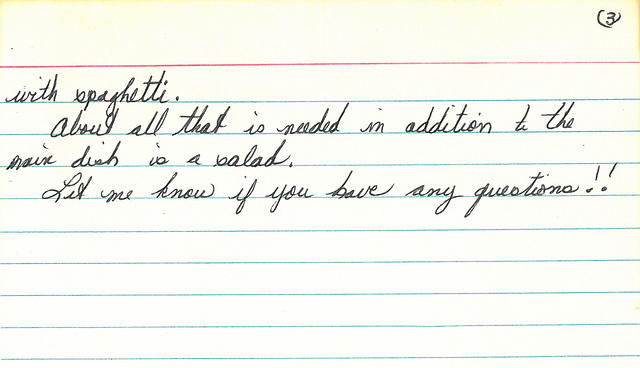 (3)
with spaghetti.
About all that is needed in addition to the
main dish is a salad.
Let me know if you have any questions!!